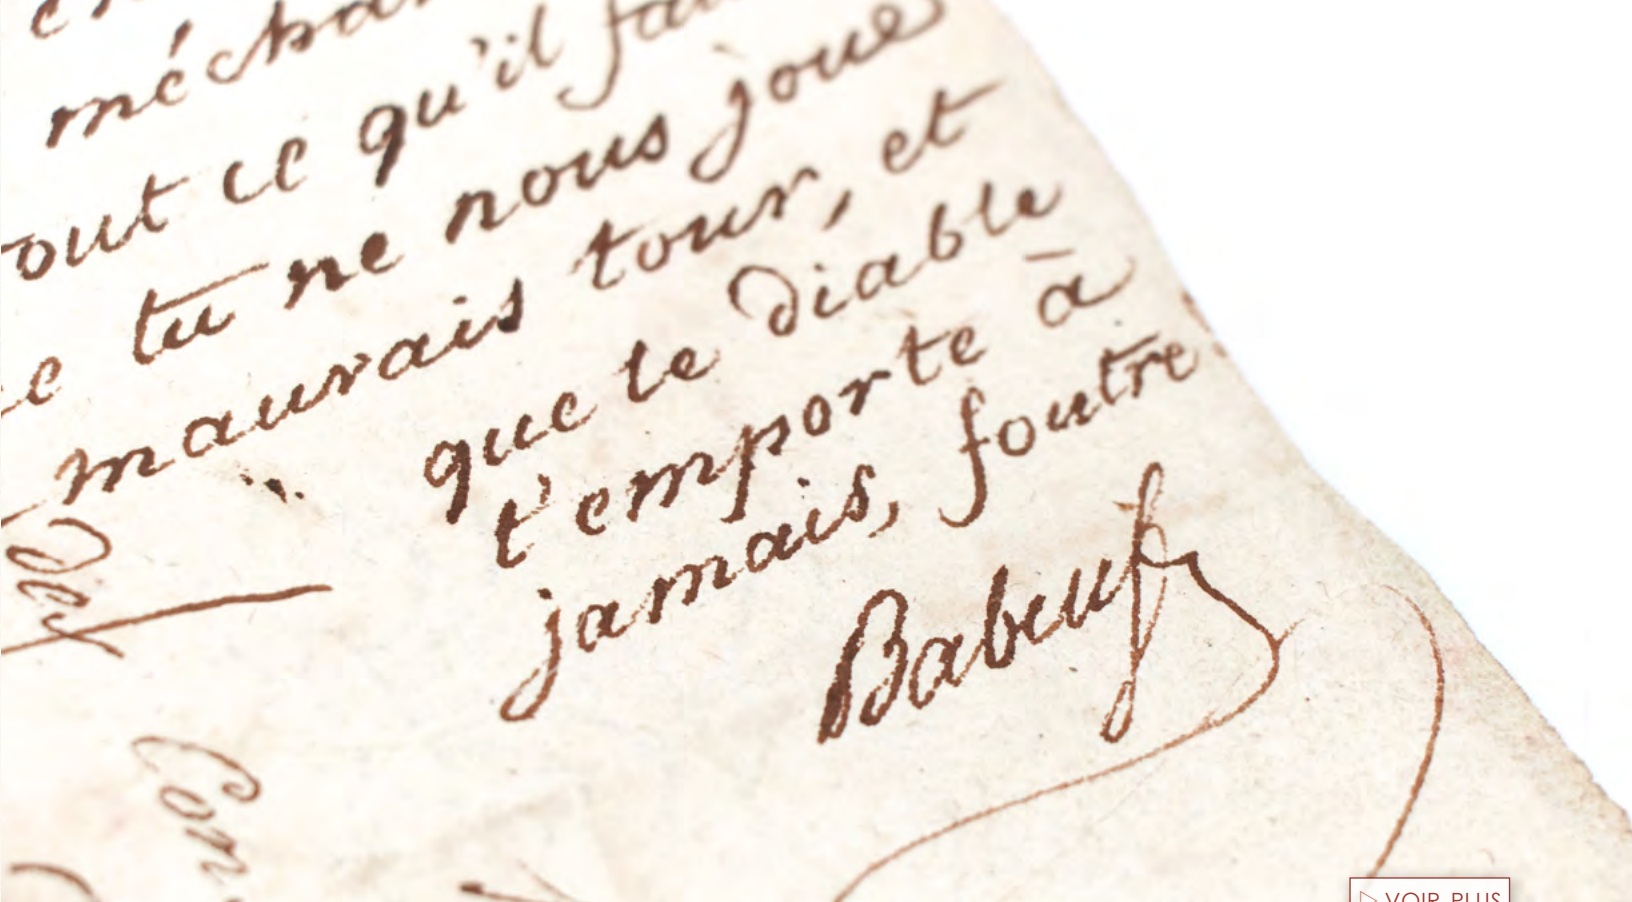 qu'il
out ce qu'il
tu ne nous joue
mauvais tour, et
que le diable
t'emporte à
jamais, foutre
Babeuf
VOIR PLUS